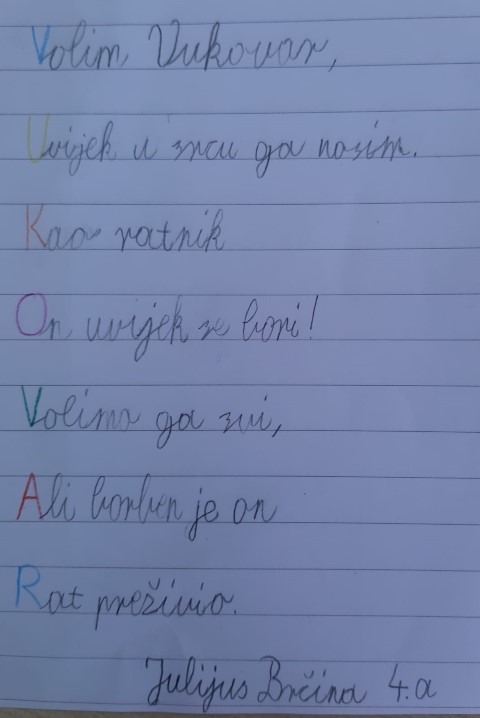 Volim Vukovar,
Uvijek u srcu ga nosim.
Kao ratnik
On uvijek se bori!
Volimo ga svi,
Ali borben je on
Rat preživio.
Julijus Brčina 4.a